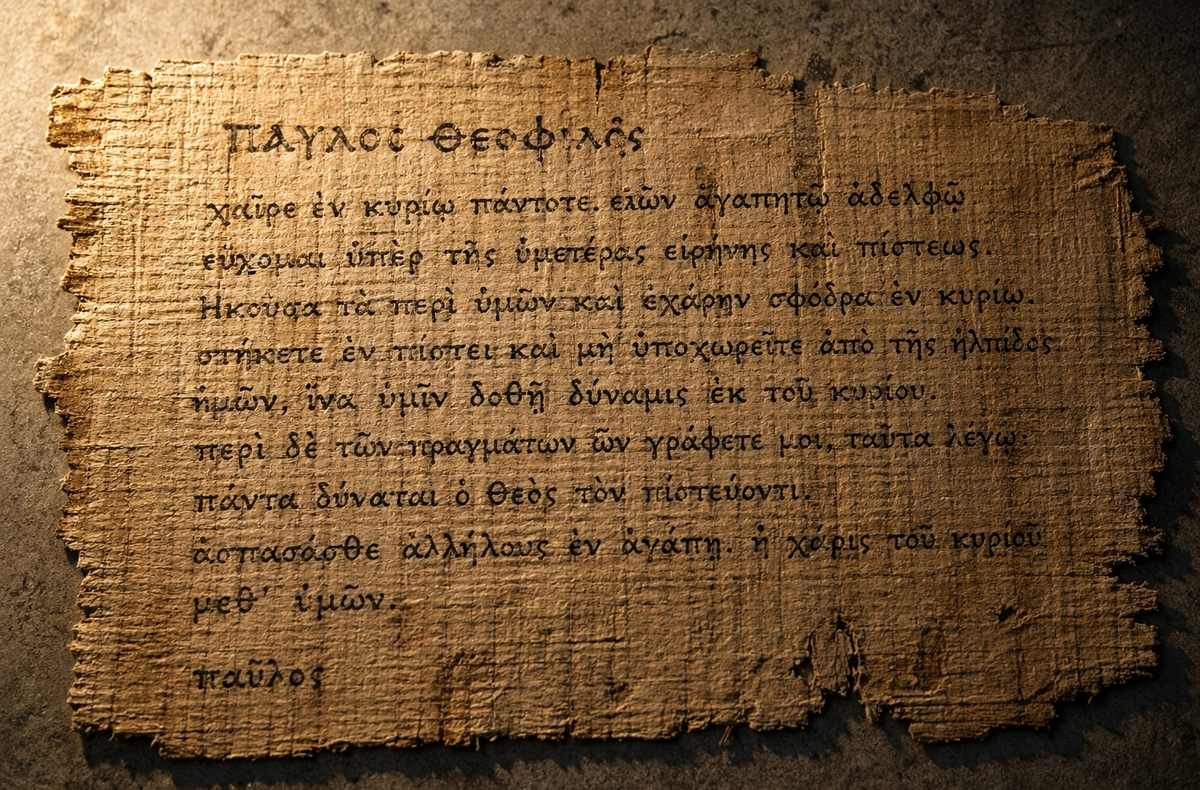 ΠΑΥΛΟΣ ΘΕΟΦΙΛΟΣ
χαῖρε ἐν κυρίῳ πάντοτε. ἀγαπητῷ ἀδελφῷ
εὔχομαι ὑπὲρ τῆς ὑμετέρας εἰρήνης καὶ πίστεως.
Ηκουσα τὰ περὶ ὑμῶν καὶ ἐχάρην σφόδρα ἐν κυρίῳ.
στήκετε ἐν πίστει καὶ μὴ ὑποχωρεῖτε ἀπὸ τῆς ἠλπίδος
ἡμῶν, ἵνα ὑμῖν δοθῇ δύναμις ἐκ τοῦ κυρίου.
περὶ δὲ τῶν πραγμάτων ὧν γράφετε μοι, ταῦτα λέγω:
πάντα δύναται ὁ θεὸς τὸν πιστεύοντι.
ἀσπασάσθε ἀλλήλους ἐν ἀγάπῃ. ἡ χάρις τοῦ κυρίοῦ
μεθ' ὑμῶν.
παῦλος